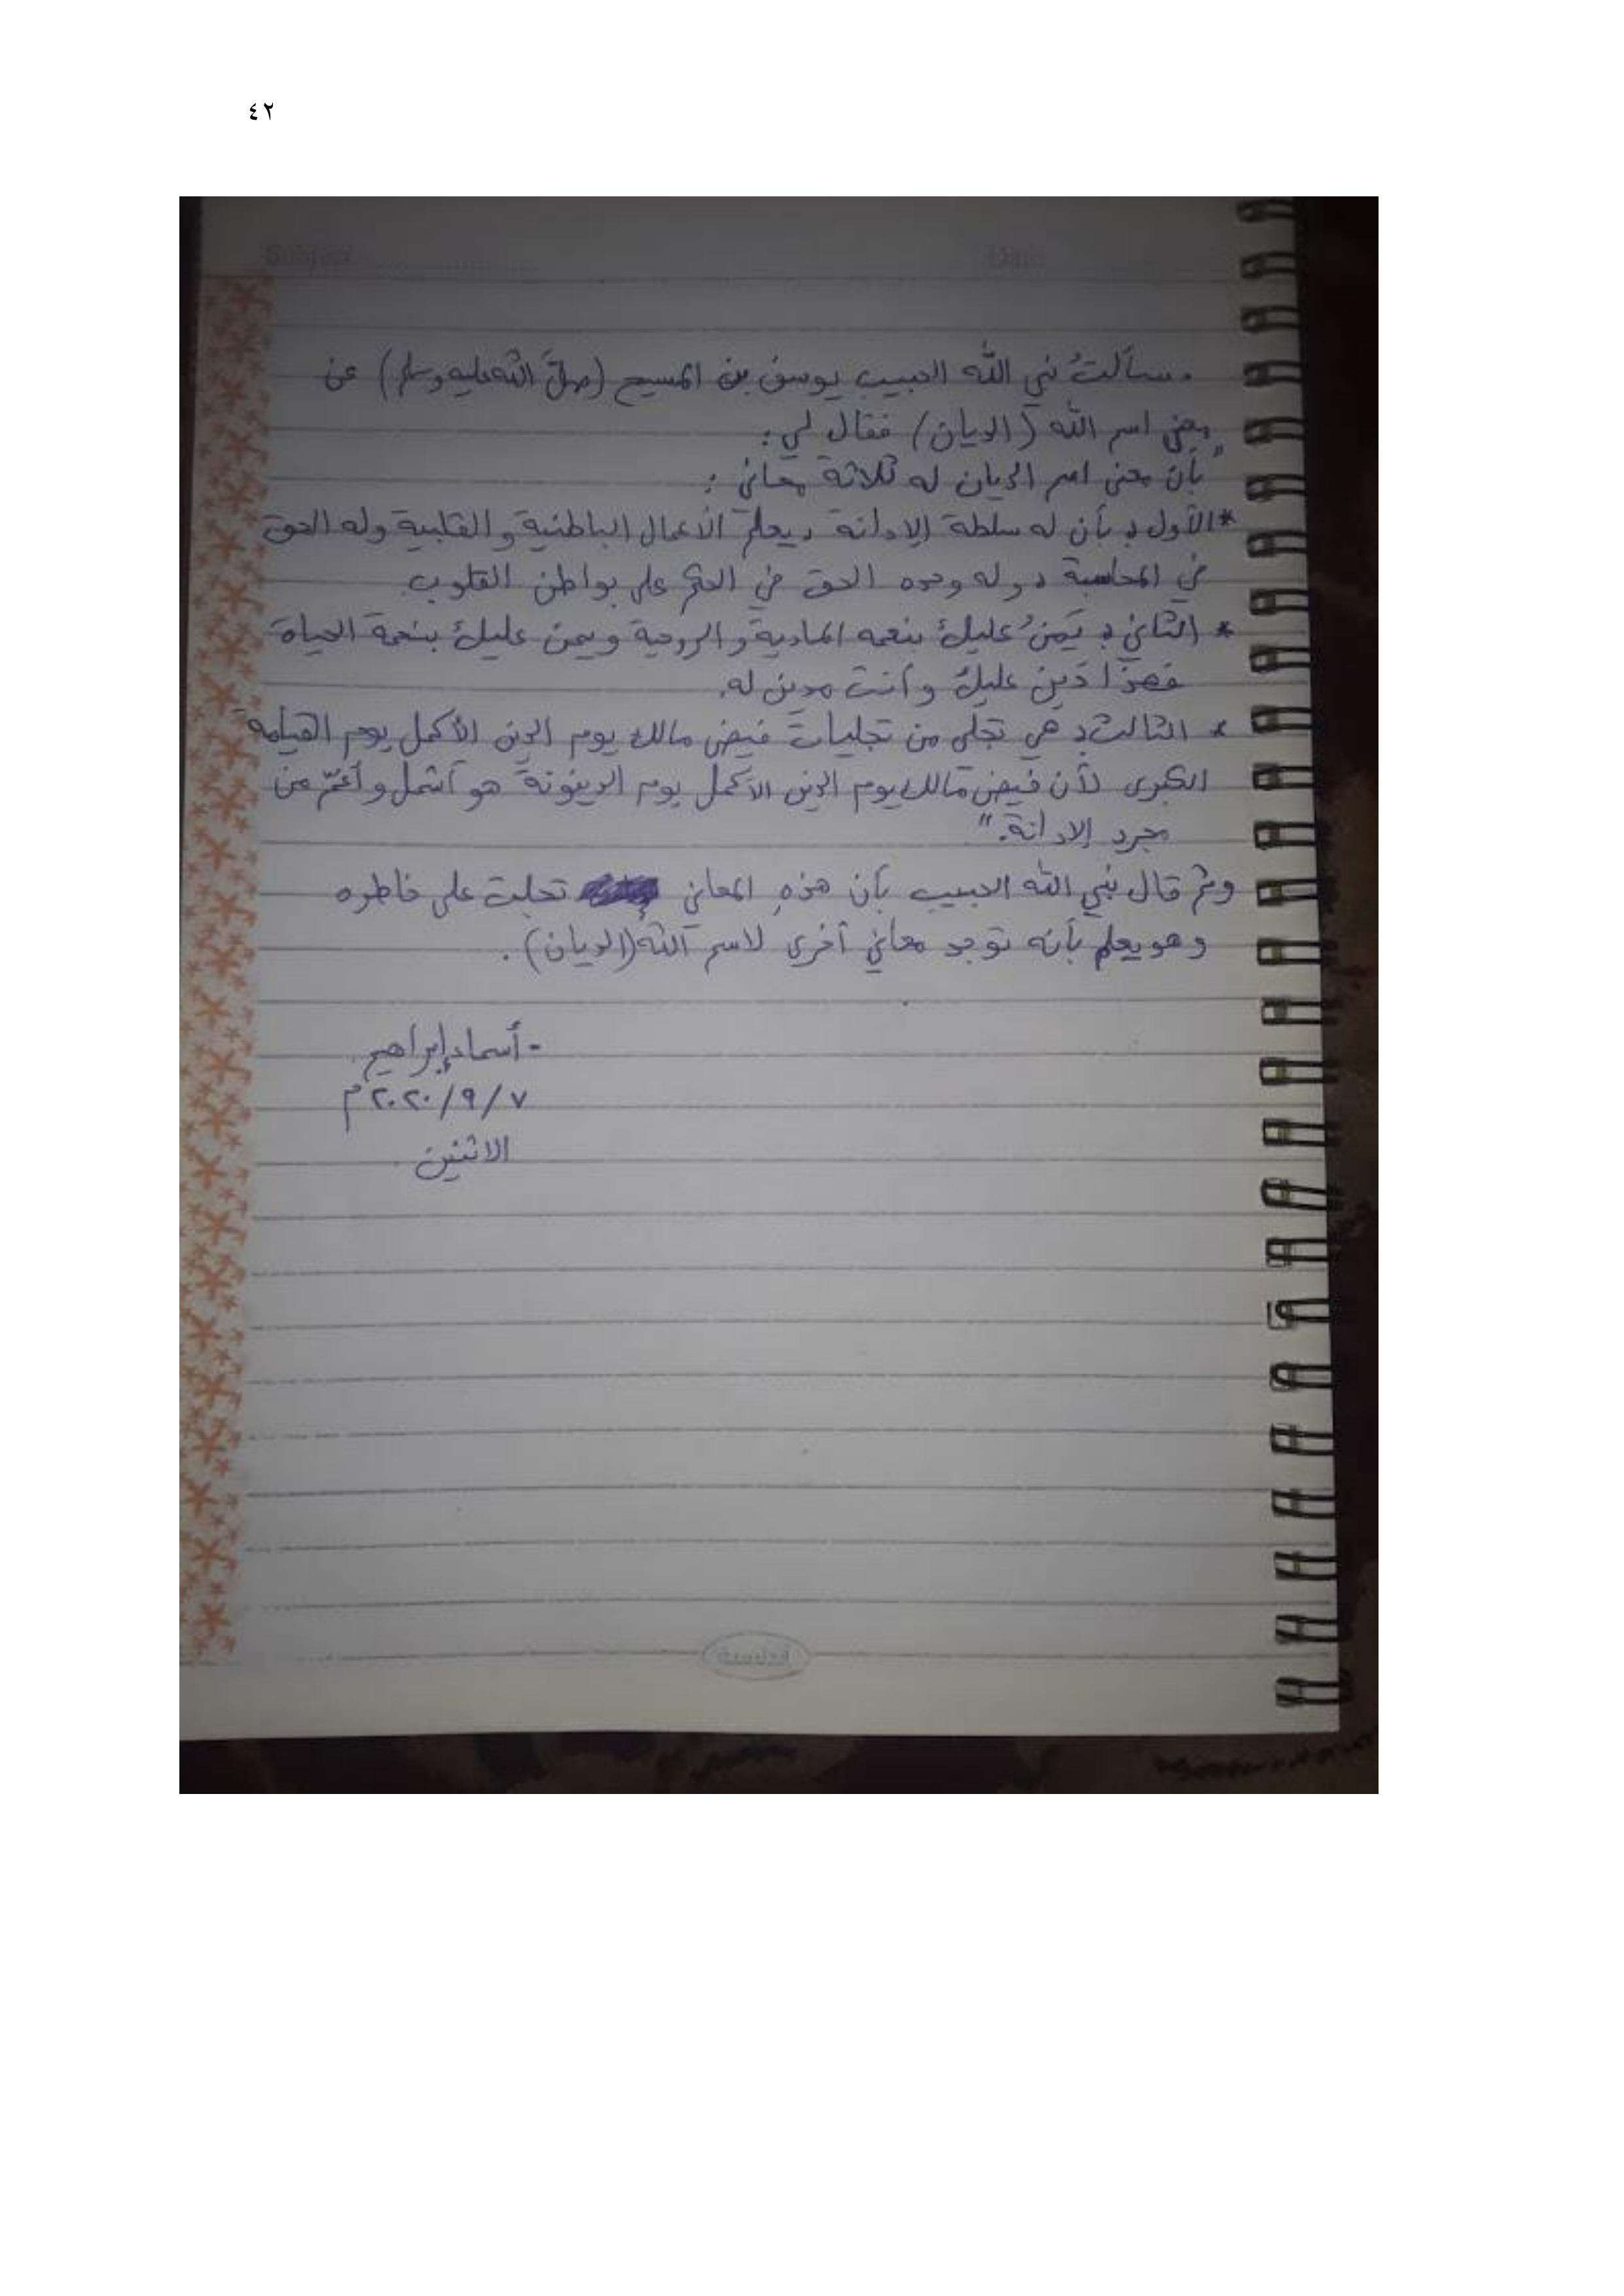 ٤٢
Subject
Date
. سألتُ نبي الله الحبيب يوسف بن المسيح (صلَّ الله عليه وسلم) عن
معنى اسم الله (الديان) فقال لي :
" بأن معنى اسم الديان له ثلاثة معاني :
* الأول : بأن له سلطة الإدانة ، يعلم الأعمال الباطنية و القلبية وله الحق
في المحاسبة ، وله وحده الحق في الحكم على بواطن القلوب .
* الثاني : يَمُنُ عليك بنعمه المادية و الروحية و يمن عليك بنعمة الحياة
فهذا دَين عليك و أنت مدين له .
* الثالث : هي تجلي من تجليات فيض مالك يوم الدين الأكمل يوم القيامة
الكبرى لأن فيض مالك يوم الدين الأكمل يوم الدينونة هو أشمل و أعمّ من
مجرد الإدانة . "
وثم قال نبي الله الحبيب بأن هذهِ المعاني تجلت على خاطره
و هو يعلم بأنه توجد معاني أخرى لاسم الله (الديان) .
- أسماء إبراهيم .
٧ / ٩ / ٢٠٢٠ م
الاثنين .